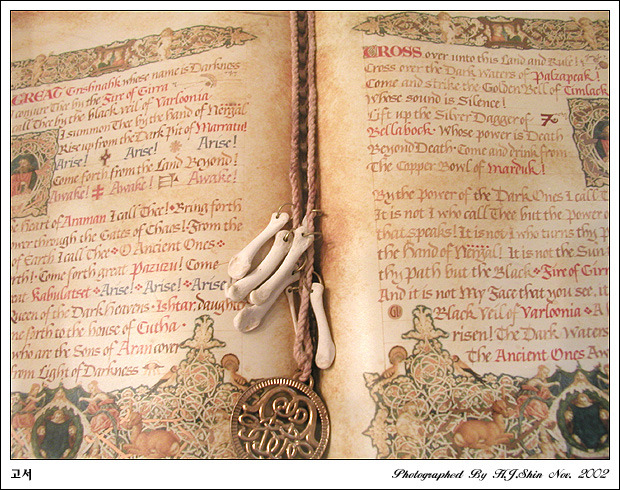 GREAT Grishnahk whose name is Darkness
conjure Thee by the Fire of Girra
call Thee by the black veil of Varloonia
I summon Thee by the hand of Nergal
Rise up from the Dark Pit of Marratu!
Arise! Arise! Arise!
Come forth from the Land Beyond!
Awake! Awake! Awake!
he heart of Araman I call Thee! Bring forth
ower through the Gates of Chaos! From the
of Earth I call Thee O Ancient Ones
rth! Come forth great Pazuzu! Come
eat Kabulatset Arise! Arise! Arise!
Queen of the Dark heavens Ishtar, daughter
me forth to the house of Cutha
who are the Sons of Aran cover
from Light of Darkness
CROSS over unto this Land and Rule!
Cross over the Dark Waters of Palzapeak!
Come and strike the Golden Bell of Timlack
Whose sound is Silence!
Lift up the Silver Dagger of
Bellabock Whose power is Death
Beyond Death Come and drink from
The Copper Bowl of Marduk!
By the Power of the Dark Ones I call T
It is not I who call Thee but the Power o
that speaks! It is not I who turns thy p
the Hand of Nergal! It is not the Sun
thy path but the Black Fire of Girr
And it is not My Face that you see, it
Black Veil of Varloonia A
risen! The Dark Waters
The Ancient Ones Aw
고서
Photographed By H.J.Shin Nov. 2002